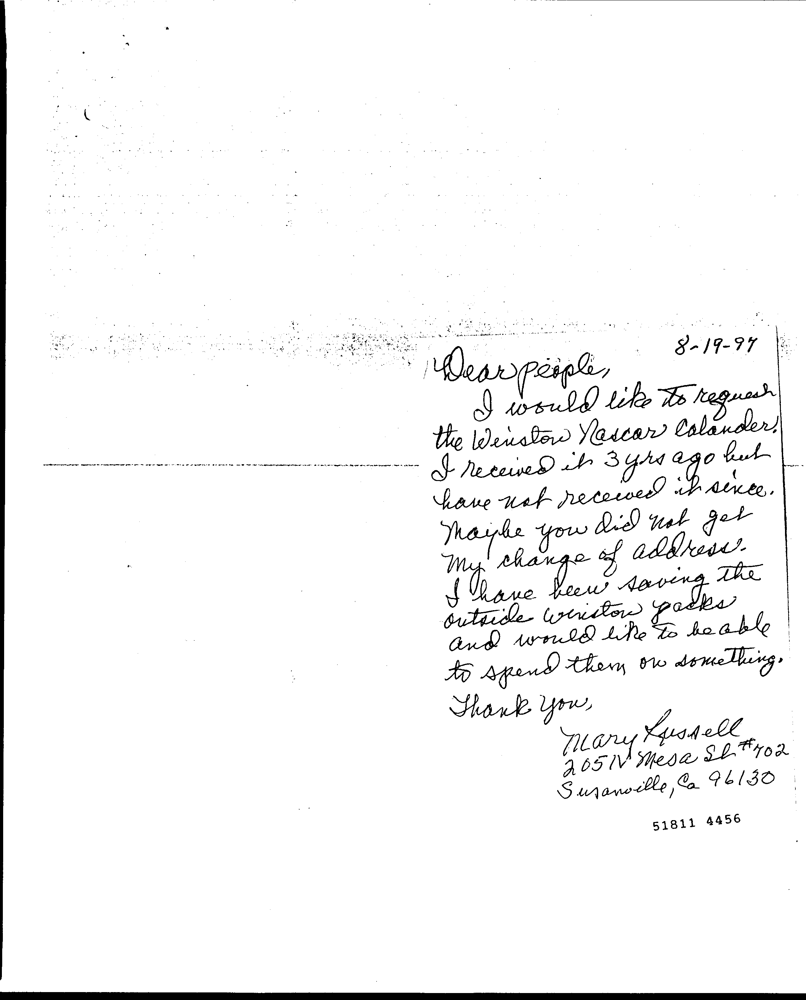 8-19-97
Dear people,
I would like to request
the Winston Nascar Calander.
I received it 3 yrs ago but
have not received it since.
Maybe you did not get
my change of address.
I have been saving the
outside Winston packs
and would like to be able
to spend them on something.
Thank you,
Mary
Mesa St #702
Susanville, Ca 96130
51811 4456